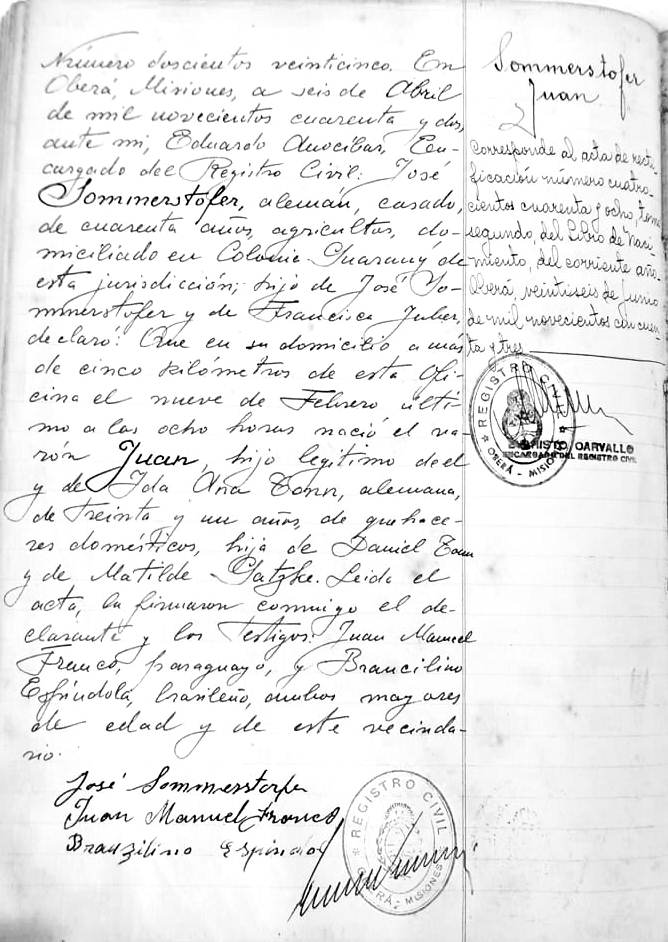 Número doscientos veinticinco. En
Oberá, Misiones, a seis de Abril
de mil novecientos cuarenta y dos,
ante mi, Eduardo Anocíbar, En-
cargado del Registro Civil: José
Sommerstofer, alemán, casado,
de cuarenta años, agricultor, do-
miciliado en Colonia Guaraný de
esta jurisdicción; hijo de José So-
mmerstofer y de Francisca Juber,
declaró: Que en su domicilio a más
de cinco kilómetros de esta Ofi-
cina el nueve de Febrero últi-
mo a las ocho horas nació el va-
rón Juan, hijo legítimo de el
y de Ida Ana Tonn, alemana,
de treinta y un años, de quehace-
res domésticos, hija de Daniel Tonn
y de Matilde Gatzke. Leida el
acta, la firmaron conmigo el de-
clarante y los testigos: Juan Manuel
Franco, paraguayo, y Brancilino
Espíndola, brasileño, ambos mayores
de edad y de este vecinda-
rio.
José Sommerstorfer
Juan Manuel Franco
Brauzilino Espindol
REGISTRO CIVIL
MISIONES
Sommerstofer
Juan
Corresponde al acta de recti-
ficación número cuatro-
cientos cuarenta y ocho, tomo
segundo, del Libro de Naci-
miento, del corriente año.
Oberá, veintiseis de Junio
de mil novecientos cincuen-
ta y tres
REGISTRO CIVIL
OBERÁ - MISIONES
EVARISTO CARVALLO
ENCARGADO DEL REGISTRO CIVIL